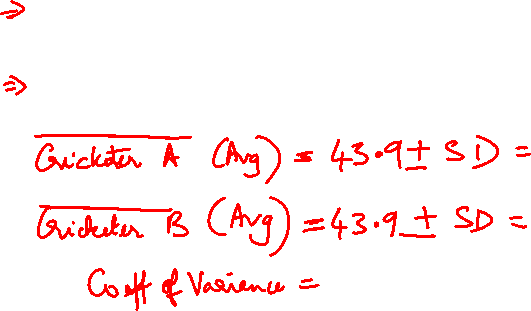 ⇒
⇒
Cricketer A (Avg) = 43.9 ± SD =
Cricketer B (Avg) = 43.9 ± SD =
Coeff of Varience =